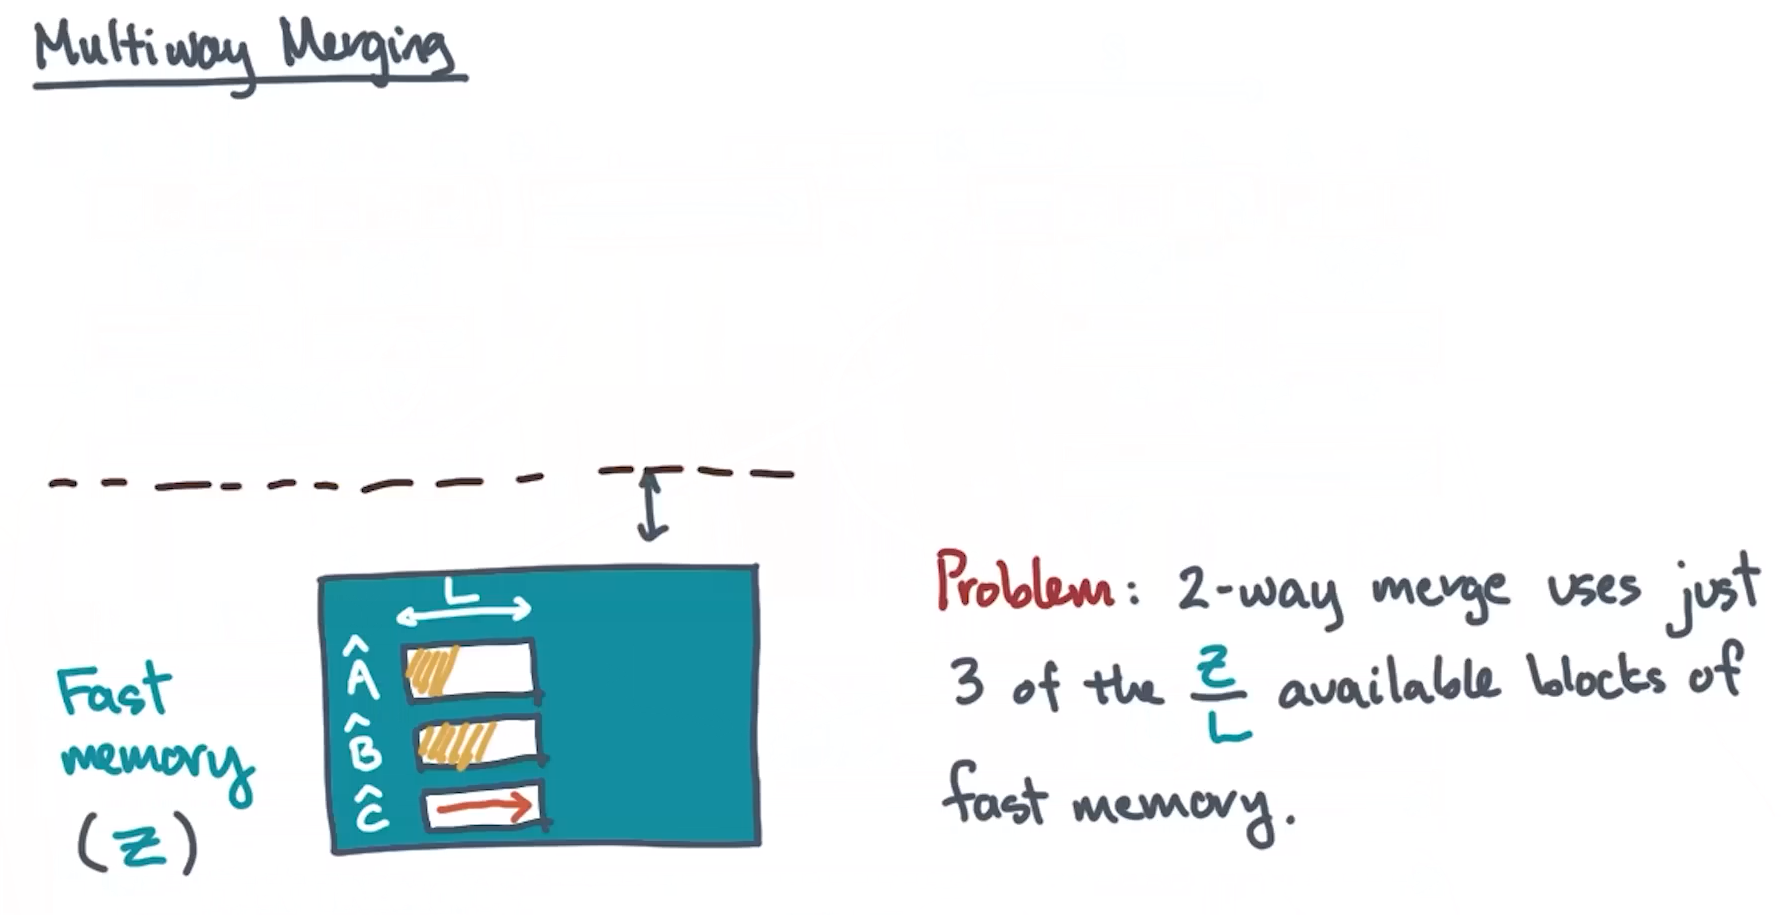 Multiway Merging
L
Â
B̂
Ĉ
Fast
memory
(Z)
Problem: 2-way merge uses just
3 of the Z/L available blocks of
fast memory.